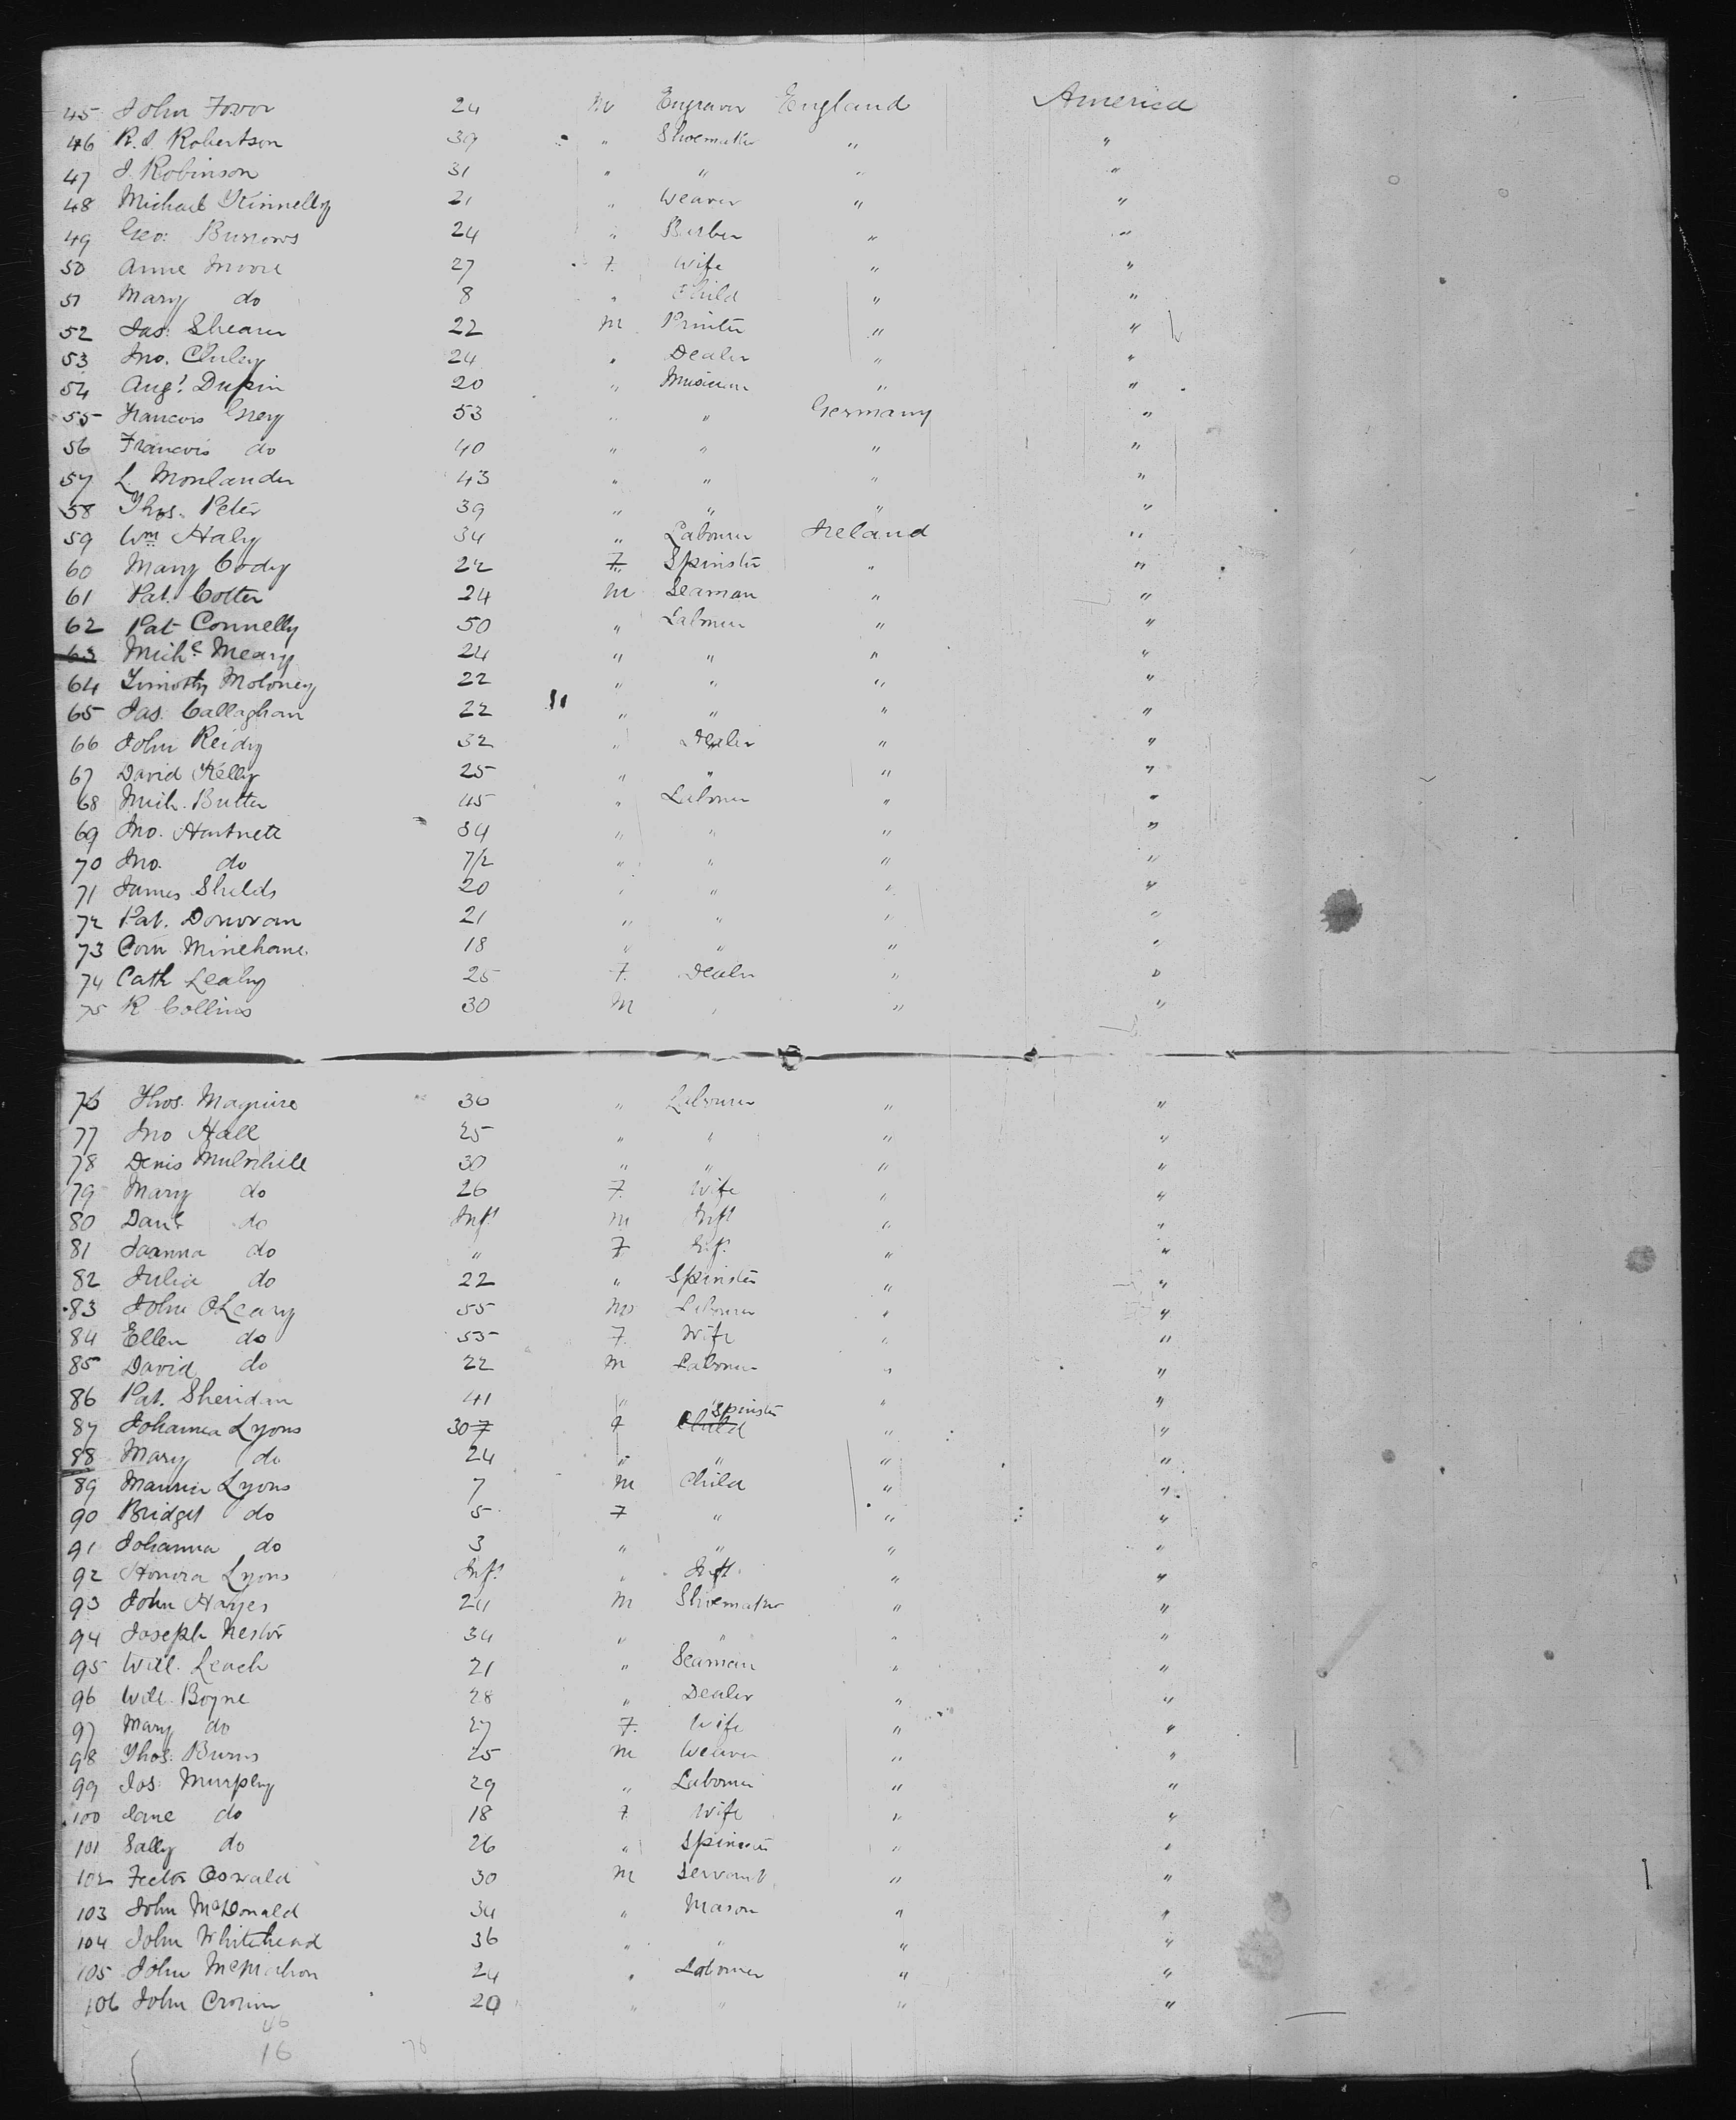 45 John 24 m Engraver England America
46 R. S. Robertson 39 " Shoemaker " "
47 J. Robinson 31 " " " "
48 Michael Kinnelly 21 " Weaver " "
49 Geo: Burrows 24 " Barber " "
50 Anne Moore 27 F. Wife " "
51 Mary do 8 " Child " "
52 Jas: Shearer 22 m Printer " "
53 Jno. 24 " Dealer " "
54 Augt Dupin 20 " Musician " "
55 Francois Grey 53 " " Germany "
56 Francois do 40 " " " "
57 L. Monlander 43 " " " "
58 Thos. Peter 39 " " " "
59 Wm Haly 34 " Labourer Ireland "
60 Mary Cody 22 F Spinster " "
61 Pat. Cotter 24 m Seaman " "
62 Pat Connelly 50 " Labourer " "
63 Michl Meary 24 " " " "
64 Timothy Moloney 22 " " " "
65 Jas. Callaghan 22 " " " "
66 John Reidy 32 " Dealer " "
67 David Kelly 25 " " " "
68 Mich. Butler 45 " Labourer " "
69 Jno. Hartnett 34 " " " "
70 Jno. do 7/2 " " " "
71 James Shields 20 " " " "
72 Pat. Donovan 21 " " " "
73 Corn Minehane 18 " " " "
74 Cath Leahy 25 F. Dealer " "
75 R Collins 30 m " " "
76 Thos. Maguire 36 " Labourer " "
77 Jno Hall 25 " " " "
78 Denis Mulvihill 30 " " " "
79 Mary do 26 F. Wife " "
80 Danl do Inft m Inft " "
81 Joanna do " F Inft " "
82 Julia do 22 " Spinster " "
83 John O'Leary 55 m Labourer " "
84 Ellen do 55 F. Wife " "
85 David do 22 m Labourer " "
86 Pat. Sheridan 41 " " "
87 Johanna Lyons 30 7 F Child Spinster " "
88 Mary do 24 " " " "
89 Maurice Lyons 7 m Child " "
90 Bridget do 5 F " " "
91 Johanna do 3 " " " "
92 Honora Lyons Inft " Inft " "
93 John Hayes 24 m Shoemaker " "
94 Joseph Nestor 34 " " " "
95 Will. Leach 21 " Seaman " "
96 Will. Boyne 28 " Dealer " "
97 Mary do 27 F. Wife " "
98 Thos: Burns 25 m Weaver " "
99 Jos: Murphy 29 " Labourer " "
100 Jane do 18 F Wife " "
101 Sally do 26 " Spinster " "
102 Oswald 30 m Servant " "
103 John McDonald 34 " Mason " "
104 John Whitehead 36 " " " "
105 John McMahon 24 " Labourer " "
106 John Cronin 20 " " " "
46
16 76